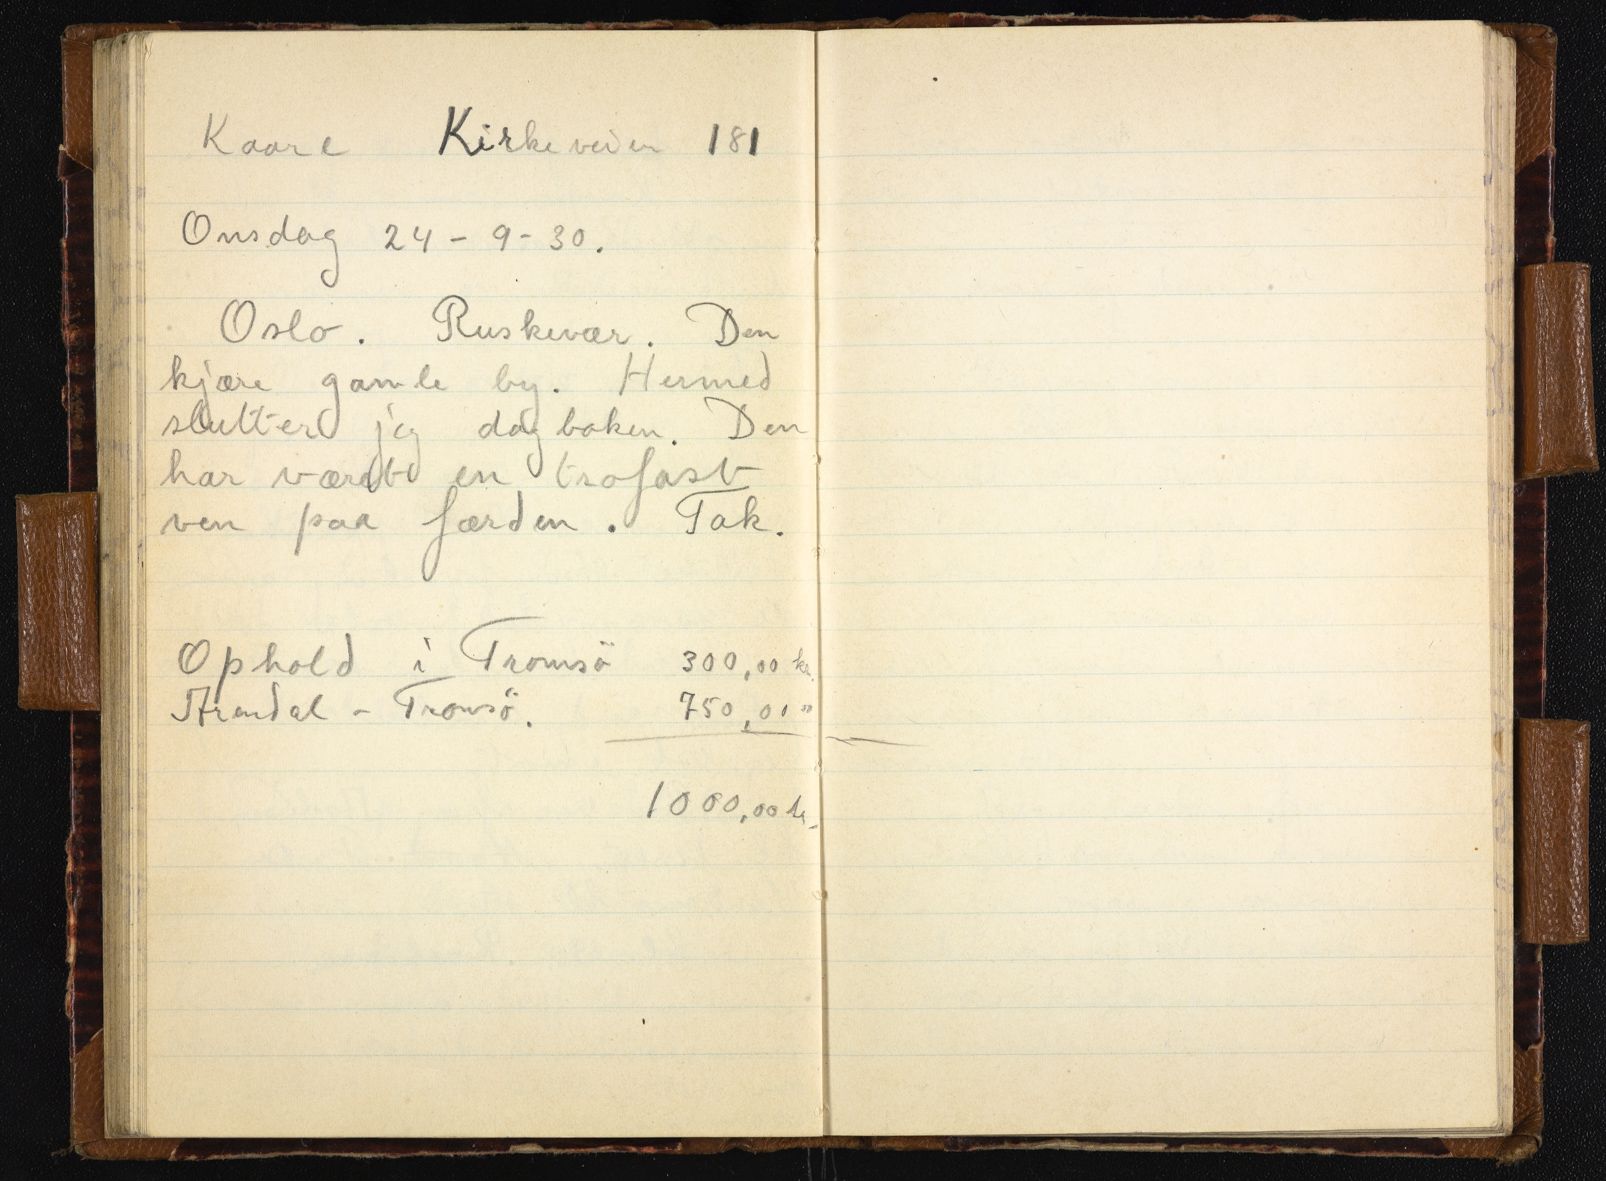 Kaare Kirkeveien 181
Onsdag 24 - 9 - 30.
Oslo. Ruskevær. Den
kjære gamle by. Hermed
slutter jeg dagboken. Den
har været en trofast
ven paa færden. Tak.
Ophold i Tromsö 300,00 kr.
Arendal - Tromsö. 750,00 "
1000,00 kr.